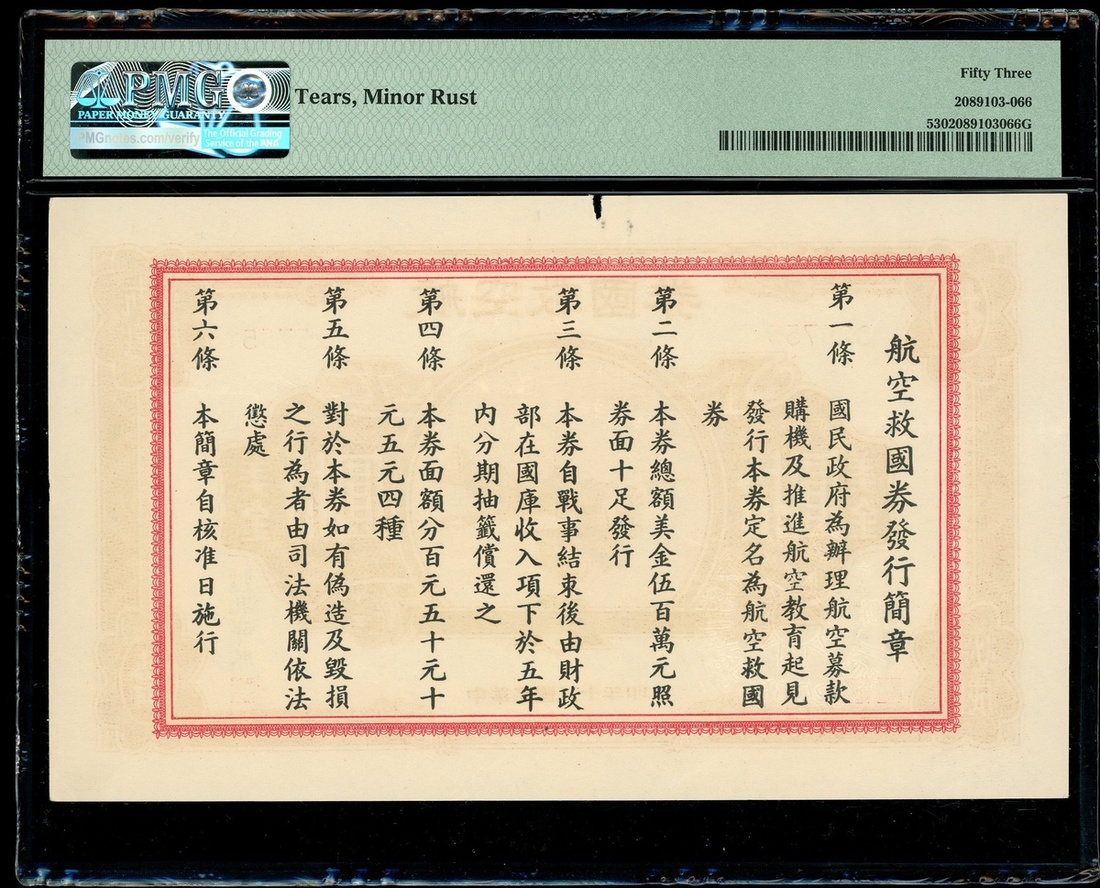 PMG
PAPER MONEY GUARANTY
PMGnotes.com/verify
The Official Grading
Service of the ANA
Tears, Minor Rust
Fifty Three
2089103-066
5302089103066G
航空救國券發行簡章
第一條 國民政府為辦理航空募款
購機及推進航空教育起見
發行本券定名為航空救國
券
第二條 本券總額美金伍百萬元照
券面十足發行
第三條 本券自戰事結束後由財政
部在國庫收入項下於五年
內分期抽籤償還之
第四條 本券面額分百元五十元十
元五元四種
第五條 對於本券如有偽造及毀損
之行為者由司法機關依法
懲處
第六條 本簡章自核准日施行